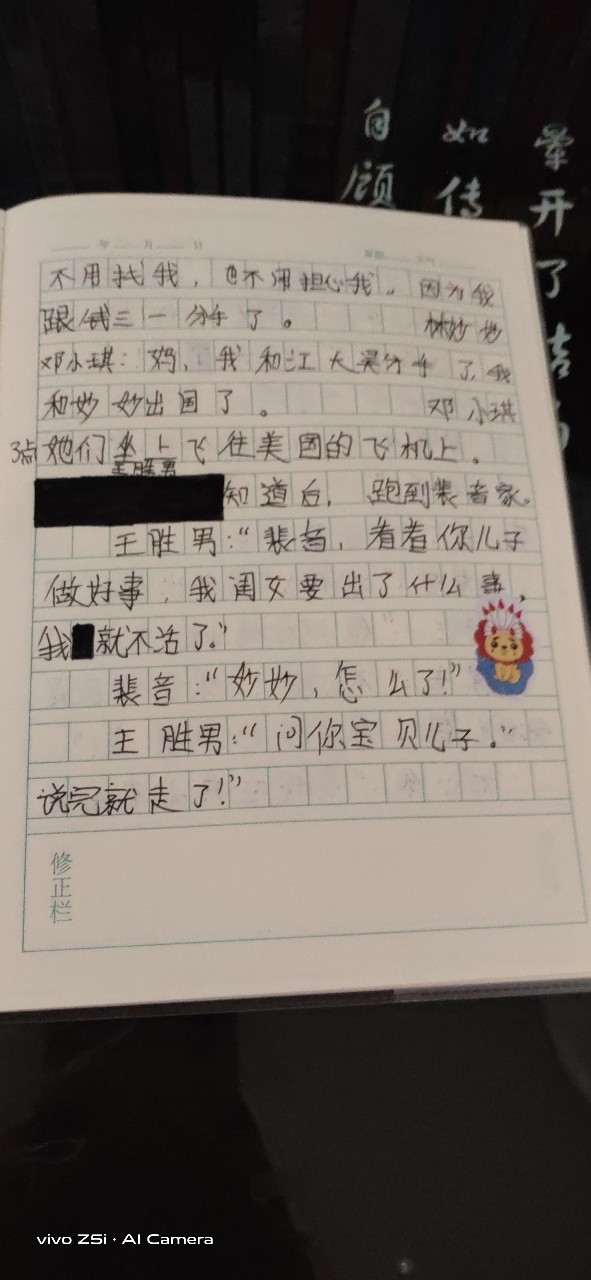 自 如 晕
顾 传 开
了
吉
年 月 日 星期 天气
不用找我，也不用担心我。因为我
跟钱三一分手了。 林妙妙
邓小琪：妈，我和江天昊分手了，我
和妙妙出国了。 邓小琪
3点她们坐上飞往美国的飞机上。
王胜男
知道后，跑到裴音家。
王胜男：“裴音，看看你儿子
做好事，我闺女要出了什么事，
我就不活了。”
裴音：“妙妙，怎么了！”
王胜男：“问你宝贝儿子。”
说完就走了！”
修正栏
vivo Z5i · AI Camera